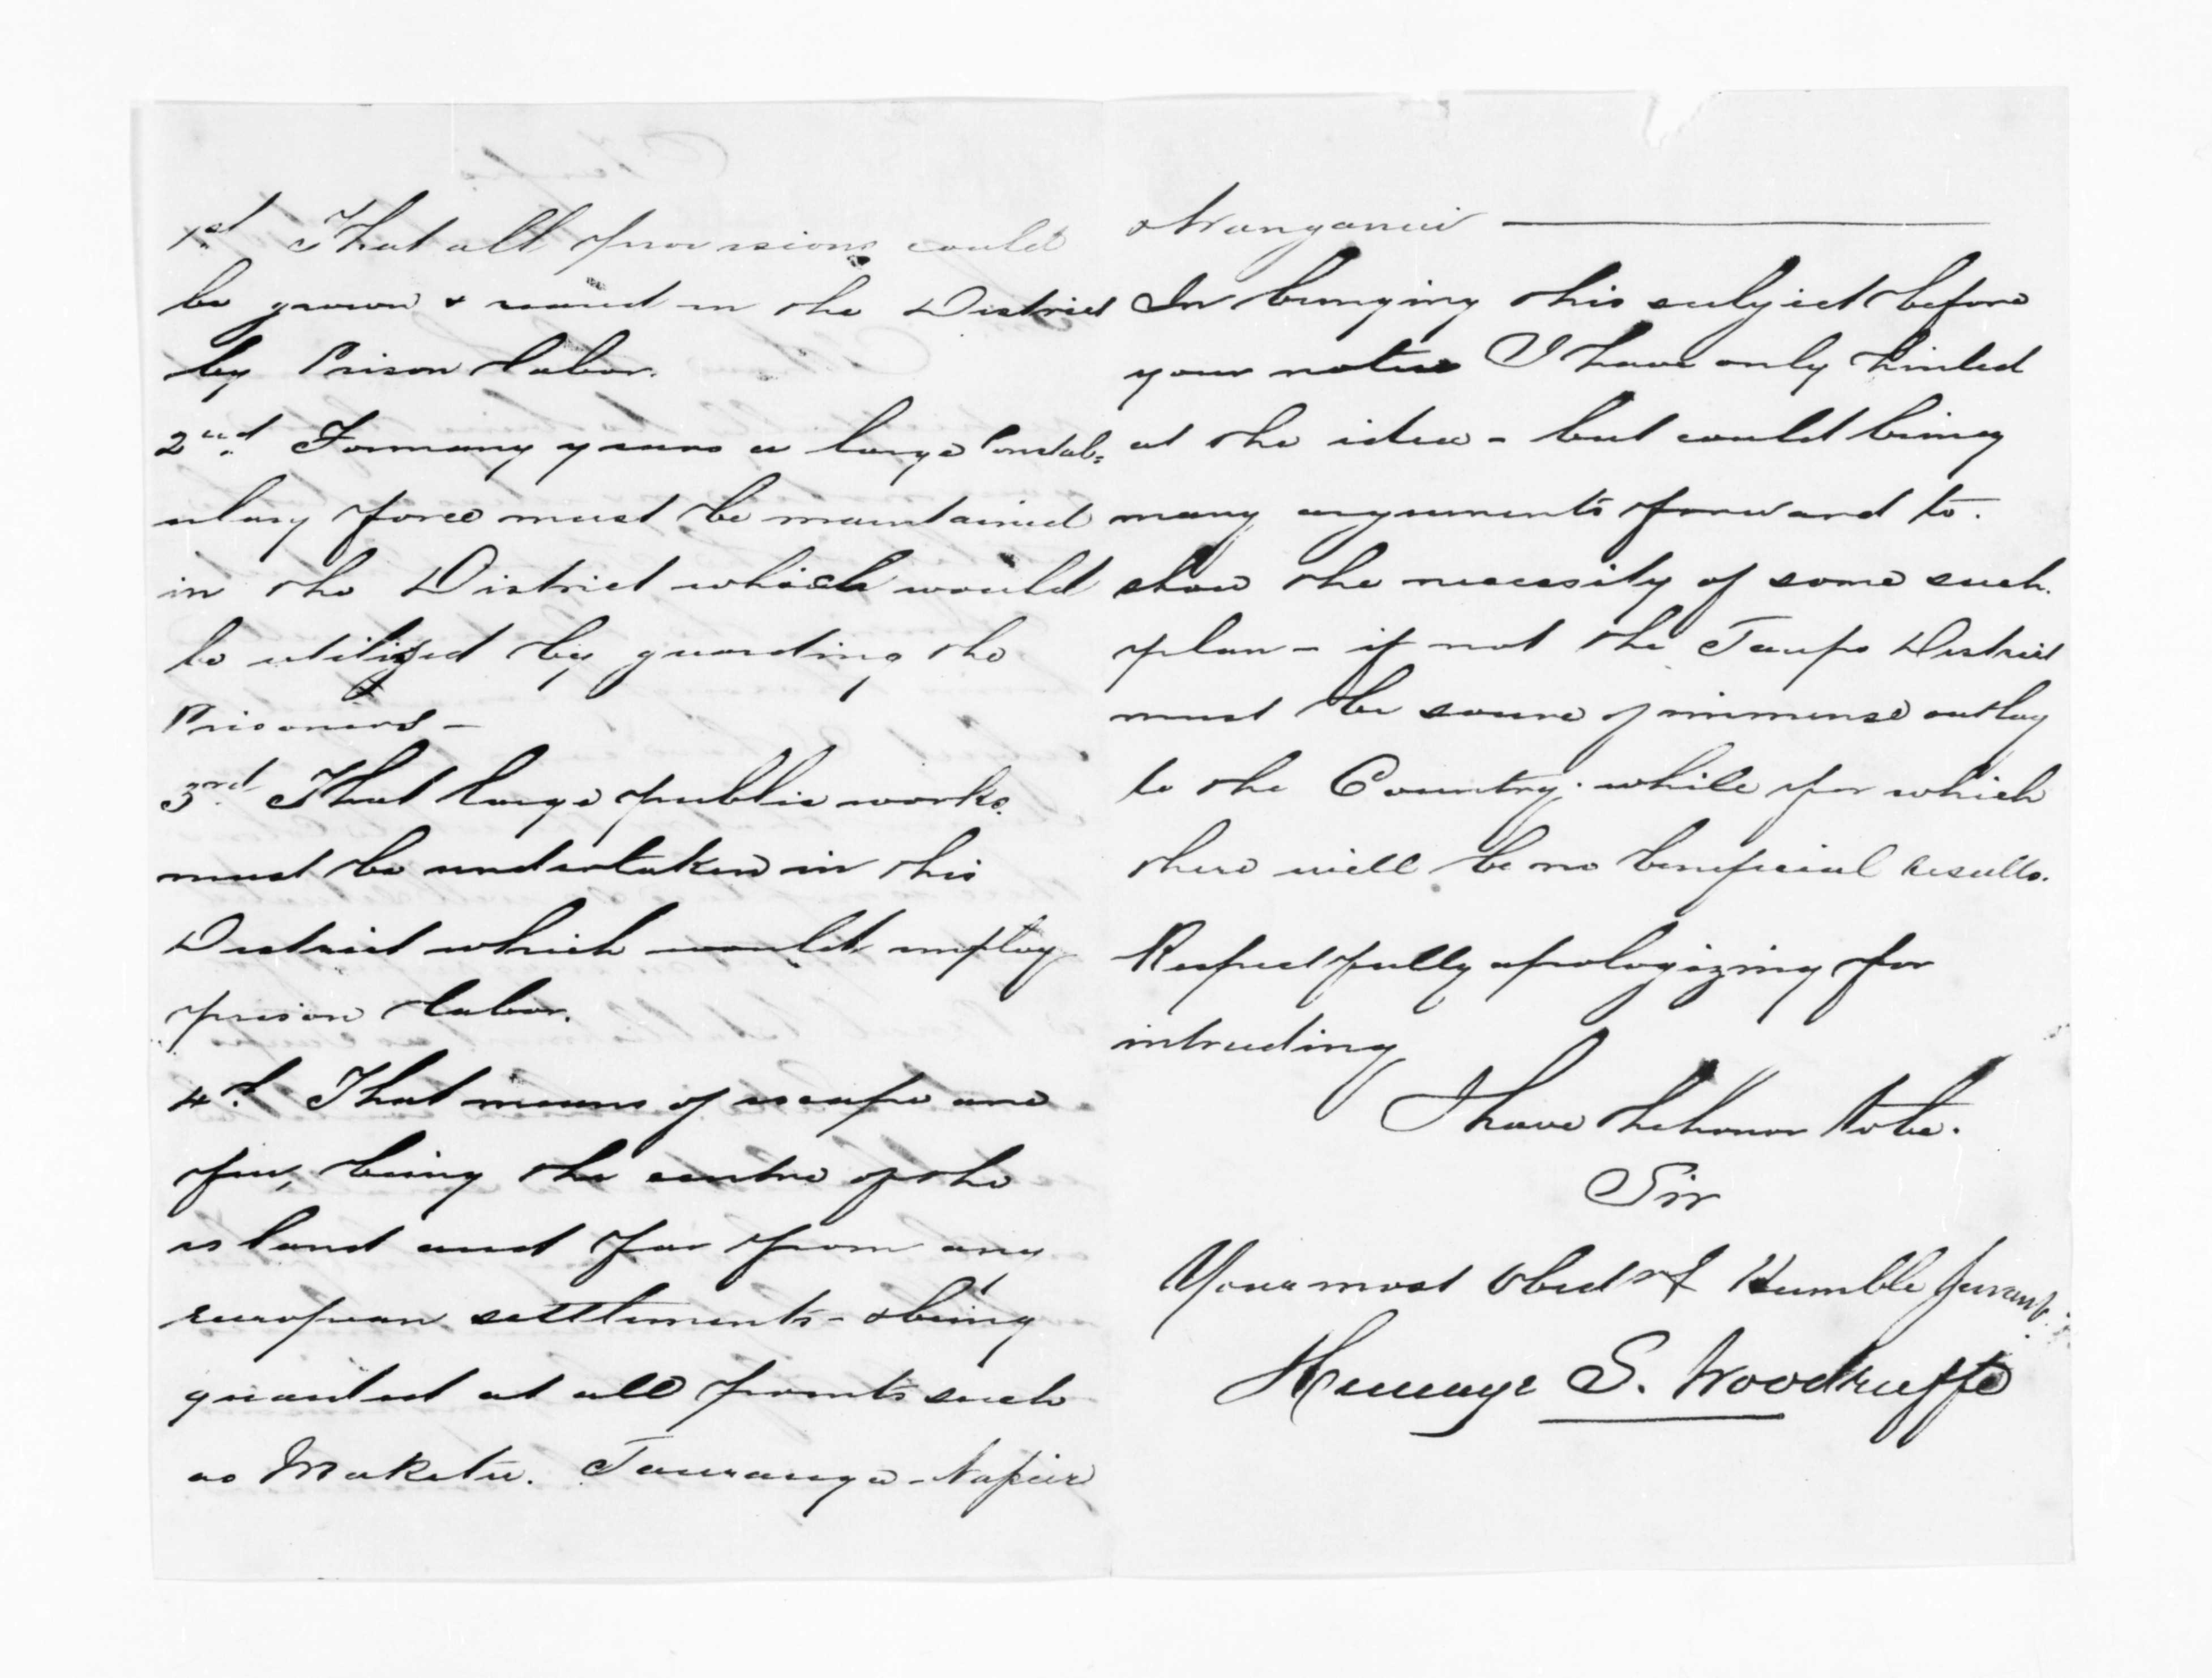 1st. That all provisions could
be grown & reared in the District
by Prison labor.
2nd. For many years a large Constab=
ulary force must be maintained
in the District which would
be utilized by guarding the
Prisoners —
3rd. That large public works
must be undertaken in this
District which would employ
prison labor.
4th. That means of escape are
few, being the centre of the
island and far from any
european settlements - & being
guarded at all points such
as Maketu. Tauranga - Napier
& Wanganui —
In bringing this subject before
your notice I have only hinted
at the idea - but could bring
many arguments forward to
show the necessity of some such
plan - if not the Taupo District
must be source of immense outlay
to the Country. while for which
there will be no beneficial results.
Respectfully apologizing for
intruding
I have the honor to be.
Sir
Your most Obedt & Humble Servant.
S. Woodruffe